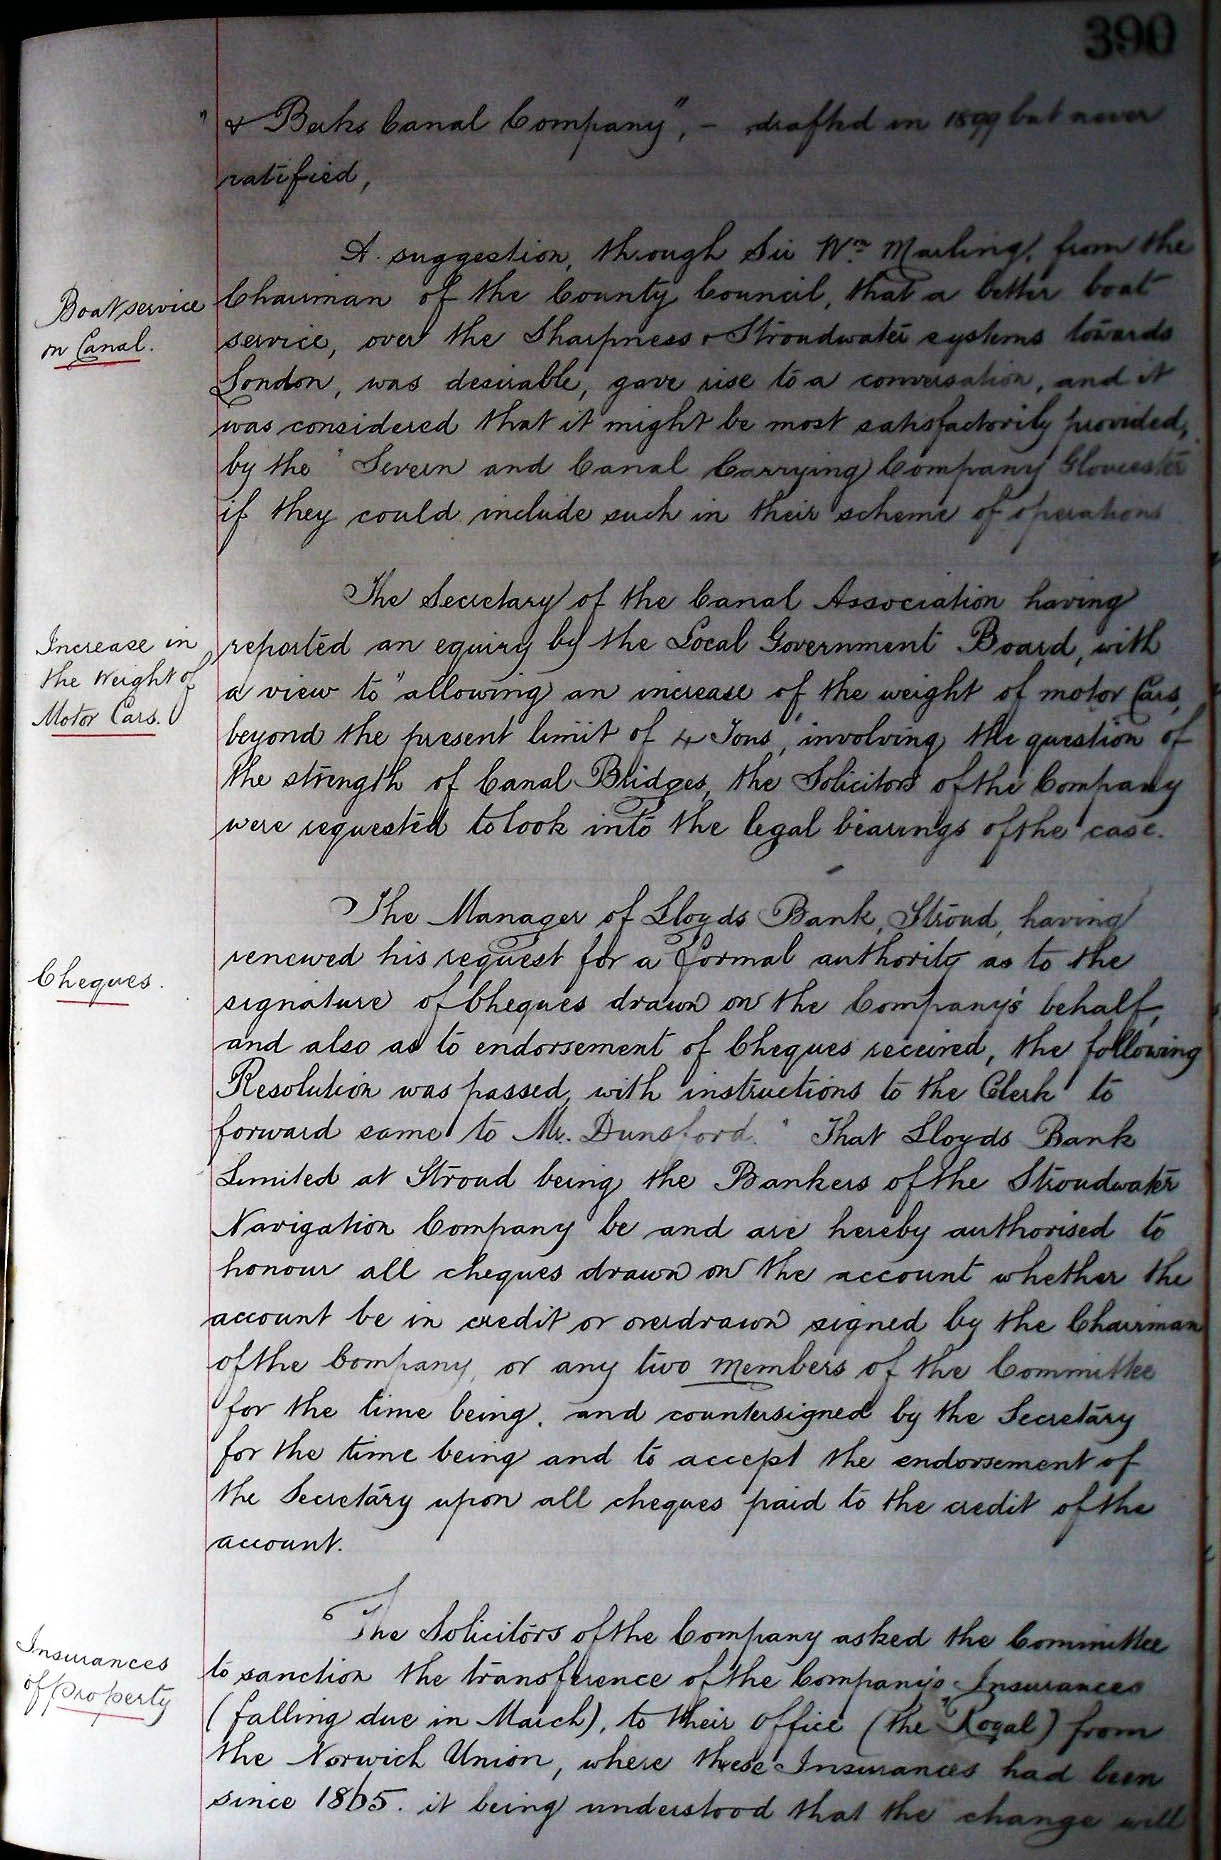 390
" & Berks Canal Company", – drafted in 1899 but never
ratified,
A suggestion, through Sir Wm. Marling, from the
Boat service
on Canal.
Chairman of the County Council, that a better boat
service, over the Sharpness & Stroudwater systems towards
London, was desirable, gave rise to a conversation, and it
was considered that it might be most satisfactorily provided,
by the "Severn and Canal Carrying Company Gloucester
if they could include such in their scheme of operations
The Secretary of the Canal Association having
Increase in
the Weight of
Motor Cars.
reported an equiry by the Local Government Board, with
a view to "allowing an increase of the weight of motor Cars,
beyond the present limit of 4 Tons, involving the question of
the strength of Canal Bridges, the Solicitors of the Company
were requested to look into the legal bearings of the case.
The Manager of Lloyds Bank, Stroud, having
Cheques.
renewed his request for a formal authority as to the
signature of Cheques drawn on the Company's behalf,
and also as to endorsement of Cheques received, the following
Resolution was passed, with instructions to the Clerk to
forward same to Mr. Dunsford. "That Lloyds Bank
Limited at Stroud being the Bankers of the Stroudwater
Navigation Company be and are hereby authorised to
honour all cheques drawn on the account whether the
account be in credit or overdrawn signed by the Chairman
of the Company, or any two members of the Committee
for the time being, and countersigned by the Secretary
for the time being and to accept the endorsement of
the Secretary upon all cheques paid to the credit of the
account.
The Solicitors of the Company asked the Committee
Insurances
of property
to sanction the transference of the Company's Insurances
(falling due in March), to their office (the "Royal) from
the Norwich Union, where these Insurances had been
since 1865. it being understood that the change will